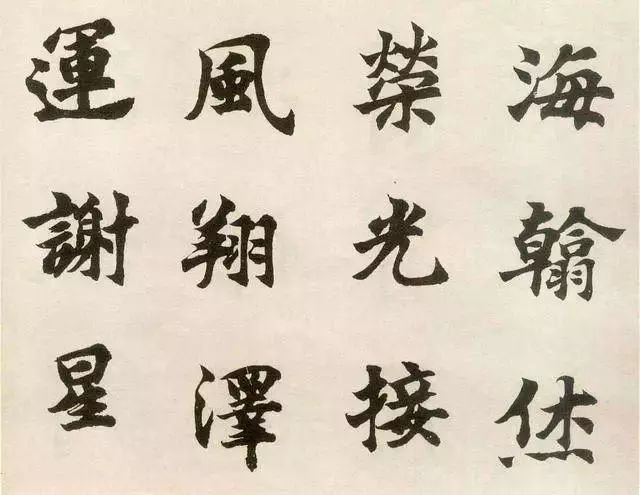 海翰烋
榮光接
風翔澤
運謝星